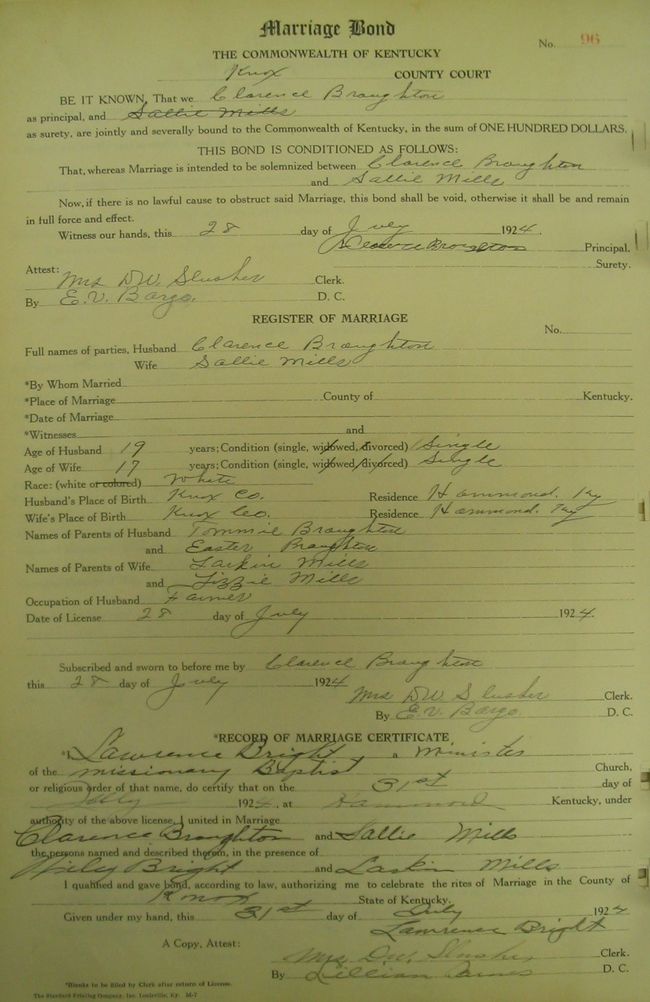 Marriage Bond
No. 96
THE COMMONWEALTH OF KENTUCKY
Knox COUNTY COURT
BE IT KNOWN, That we Clarence Broughton
as principal, and Sallie Mills
as surety, are jointly and severally bound to the Commonwealth of Kentucky, in the sum of ONE HUNDRED DOLLARS.
THIS BOND IS CONDITIONED AS FOLLOWS:
That, whereas Marriage is intended to be solemnized between Clarence Broughton
and Sallie Mills
Now, if there is no lawful cause to obstruct said Marriage, this bond shall be void, otherwise it shall be and remain
in full force and effect.
Witness our hands, this 28 day of July 1924.
Broughton Principal.
Surety.
Attest:
Mrs DW. Slusher Clerk.
By E.V. Bargo. D. C.
REGISTER OF MARRIAGE
No.
Full names of parties, Husband Clarence Broughton
Wife Sallie Mills
*By Whom Married
*Place of Marriage County of Kentucky.
*Date of Marriage
*Witnesses and
Age of Husband 19 years; Condition (single, widowed, divorced) Single
Age of Wife 17 years; Condition (single, widowed, divorced) Single
Race: (white or colored) White
Husband's Place of Birth Knox Co. Residence Hammond. Ky
Wife's Place of Birth Knox Co. Residence Hammond. Ky
Names of Parents of Husband Tommie Broughton
and Easter Broughton
Names of Parents of Wife Larkin Mills
and Lizzie Mills
Occupation of Husband Farmer
Date of License 28 day of July 1924.
Subscribed and sworn to before me by Clarence Broughton
this 28 day of July 1924
Mrs DW Slusher Clerk.
By E.V. Bargo D. C.
*RECORD OF MARRIAGE CERTIFICATE
*I, Lawrence Bright a Minister
of the missionary Baptist Church,
or religious order of that name, do certify that on the 31st day of
July 1924, at Hammond Kentucky, under
authority of the above license, I united in Marriage
Clarence Broughton and Sallie Mills
the persons named and described therein, in the presence of
Wiley Bright and Larkin Mills
I qualified and gave bond, according to law, authorizing me to celebrate the rites of Marriage in the County of
Knox State of Kentucky.
Given under my hand, this 31st day of July 1924
Lawrence Bright
A Copy, Attest: Mrs DW. Slusher Clerk.
By Lillian D. C.
*Blanks to be filled by Clerk after return of License.
The Standard Printing Company, Inc. Louisville, Ky. M-7